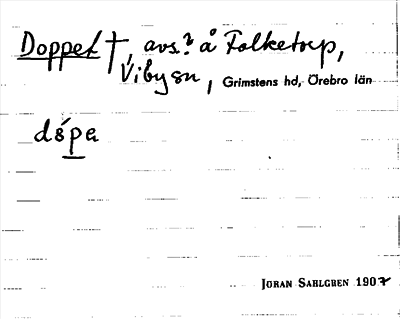 Doppet †, avs.? å Folketorp,
Viby sn, Grimstens hd, Örebro län
dǿpa
JÖRAN SAHLGREN 1907